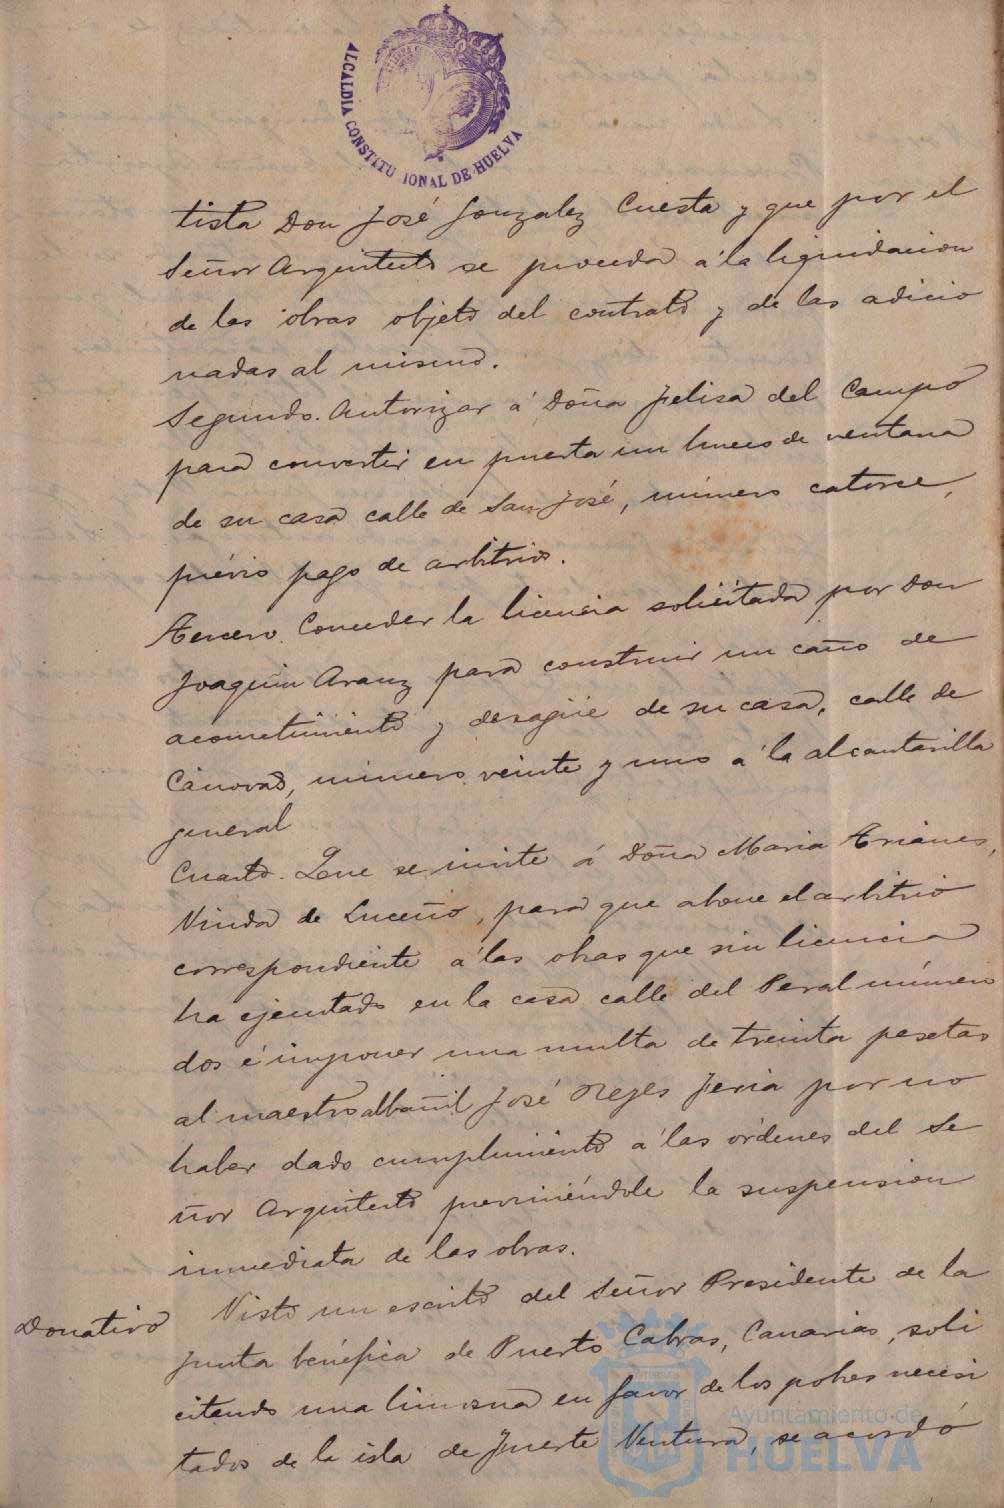 ALCALDIA CONSTITUCIONAL DE HUELVA
tista Don José Gonzalez Cuesta y que por el
Señor Arquitecto se proceda á la liquidacion
de las obras objeto del contrato y de las adicio
nadas al mismo.
Segundo. Autorizar á Doña Felisa del Campo
para convertir en puerta un hueco de ventana
de su casa calle de San José, número catorce,
prévio pago de arbitrios.
Tercero. Conceder la licencia solicitada por Don
Joaquin Aranz para construir un caño de
acometimiento y desagüe de su casa, calle de
Cánovas, número veinte y uno á la alcantarilla
general
Cuarto. Que se invite á Doña Maria Trianes,
Viuda de Luceño, para que abone el arbitrio
correspondiente á las obras que sin licencia
ha ejecutado en la casa calle del Peral número
dos é imponer una multa de treinta pesetas
al maestro albañil José Reyes Feria por no
haber dado cumplimiento á las órdenes del Se
ñor Arquitecto previniéndole la suspension
inmediata de las obras.
Donativo Visto un escrito del Señor Presidente de la
junta benéfica de Puerto Cabras, Canarias, soli
citando una limosna en favor de los pobres necesi
tados de la isla de Fuerte Ventura, se acordó
Ayuntamiento de
HUELVA